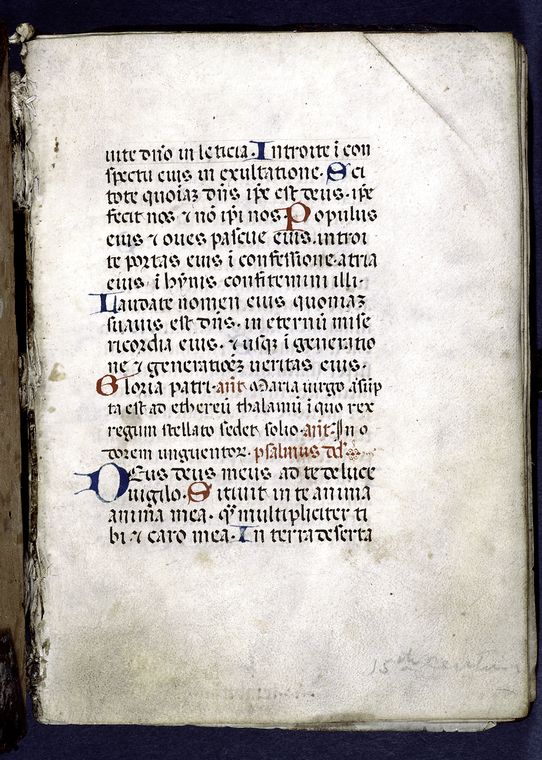 uite dn̄o in leticia. Introite ī con
spectu eius in exultatione. Sci
tote quoiaʒ dn̄s ip̄e est deus. ip̄e
fecit nos ⁊ nō ip̄i nos Populus
eius ⁊ oues pascue eius. introi
te portas eius ī confessione. atria
eius ī hȳnis confitemini illi.
Laudate nomen eius quoniaʒ
suauis est dn̄s. in eternū mise
ricordia eius. ⁊ usqʒ ī generatio
ne ⁊ generatioēʒ ueritas eius.
Gloria patri. añt Maria uirgo assūp
ta est ad ethereū thalamū ī quo rex
regum stellato sedet solio. añt. In o
dorem unguentoꝝ. psalmus dd̄
Deus deus meus ad te de luce
uigilo. Sitiuit in te anima
anima mea. qꝫ multipliciter ti
bi ⁊ caro mea. In terra deserta
15th century